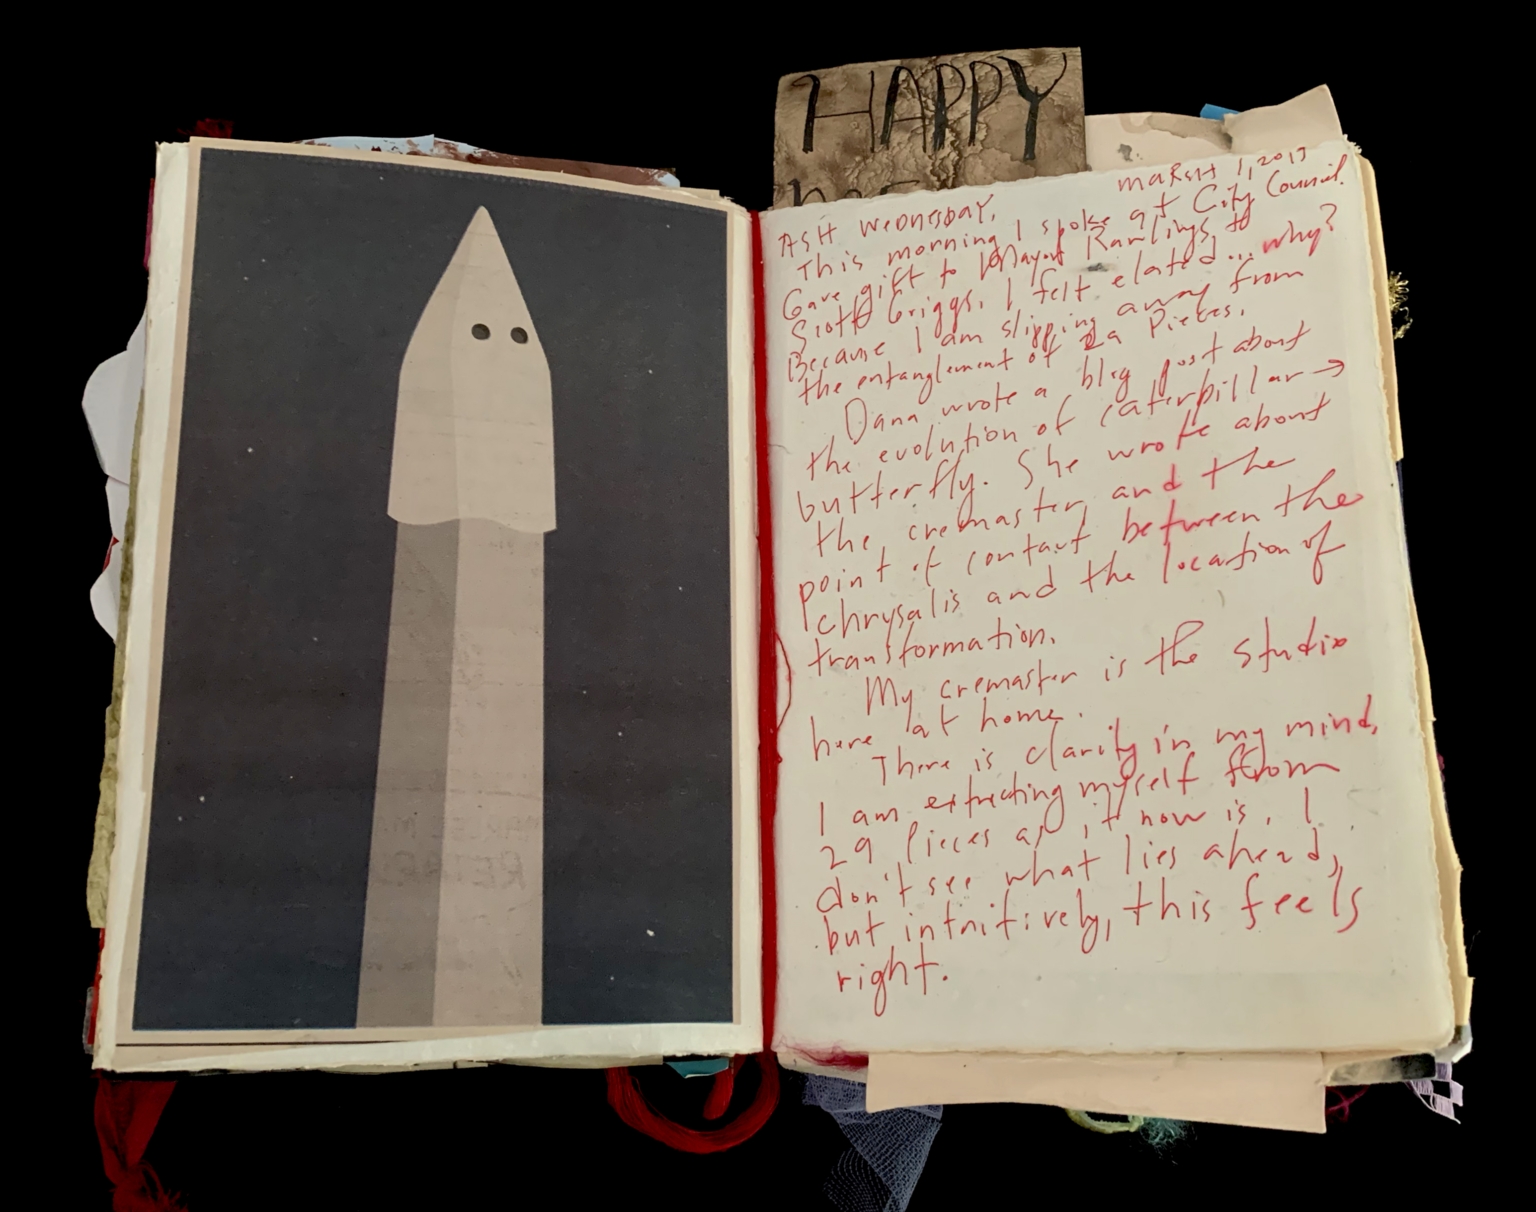 HAPPY
MARSH 1, 2017
ASH WEDNESDAY,
This morning I spoke at City Council.
Gave gift to Mayor Rawlings &
Scott Griggs. I felt elated... why?
Because I am slipping away from
the entanglement of 29 Pieces.
Dana wrote a blog post about
the evolution of caterpillar →
butterfly. She wrote about
the cremaster and the
point of contact between the
chrysalis and the location of
transformation.
My cremaster is the studio
here at home.
There is clarity in my mind,
I am extracting myself from
29 Pieces as it now is. I
don't see what lies ahead,
but intuitively, this feels
right.